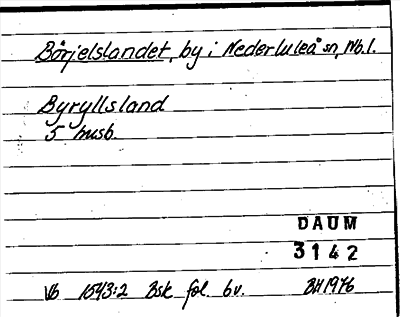 Börjelslandet, by i Nederluleå sn, Nb.l.
Byryllsland
5 husb.
DAUM
3142
Vb 1543:2 Bsk fol. 6v. BH1976